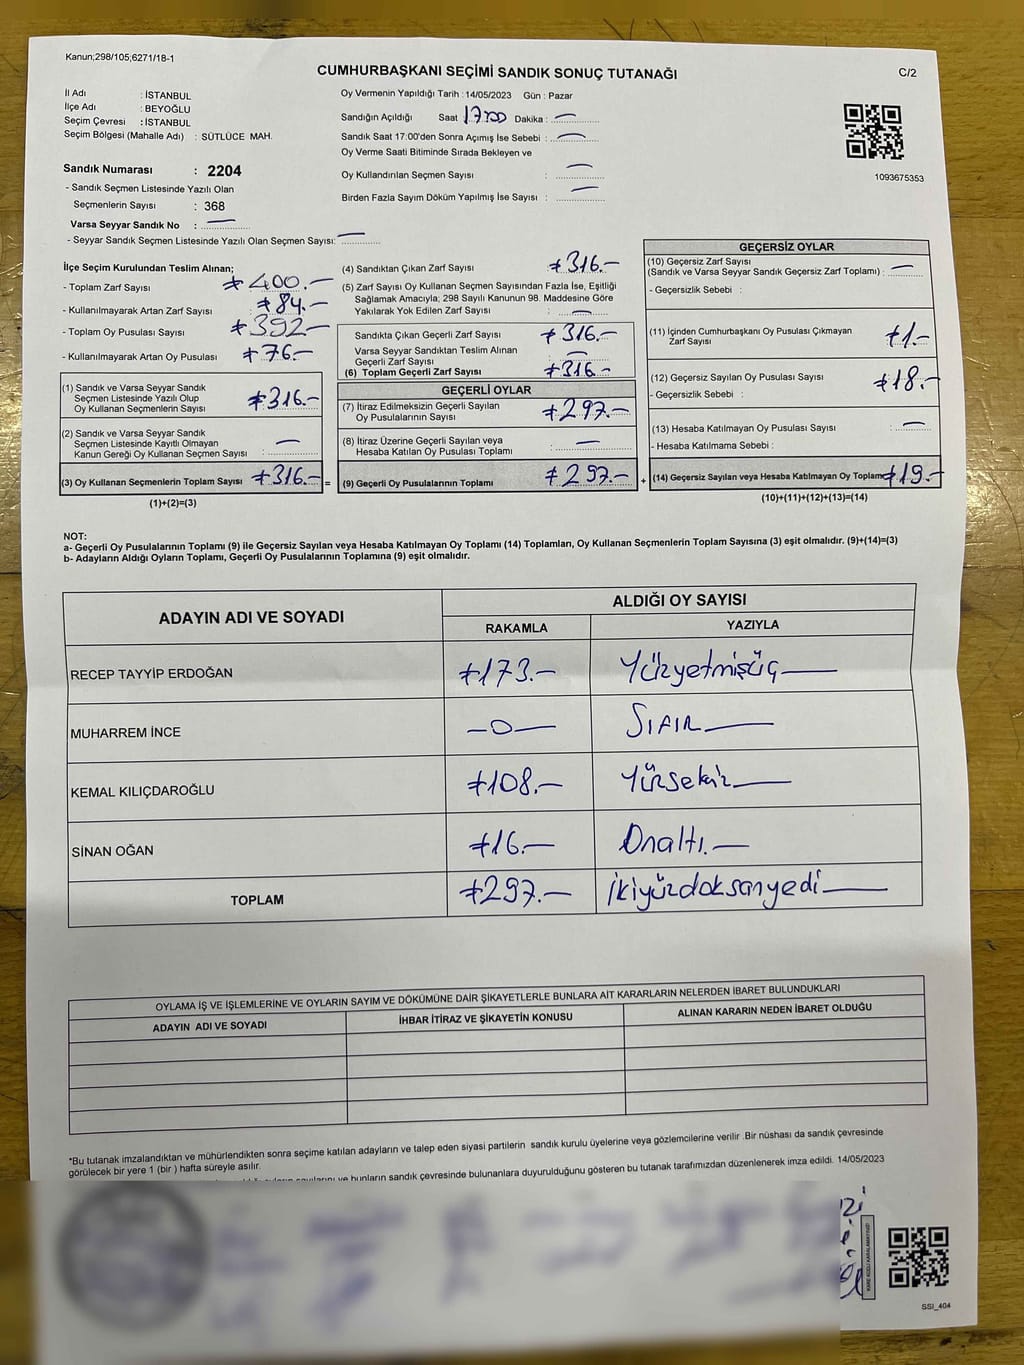 Kanun;298/105;6271/18-1
CUMHURBAŞKANI SEÇİMİ SANDIK SONUÇ TUTANAĞI
C/2
İl Adı : İSTANBUL
İlçe Adı : BEYOĞLU
Seçim Çevresi : İSTANBUL
Seçim Bölgesi (Mahalle Adı) : SÜTLÜCE MAH.
Sandık Numarası : 2204
- Sandık Seçmen Listesinde Yazılı Olan
Seçmenlerin Sayısı : 368
Varsa Seyyar Sandık No : —
- Seyyar Sandık Seçmen Listesinde Yazılı Olan Seçmen Sayısı: —
Oy Vermenin Yapıldığı Tarih : 14/05/2023 Gün : Pazar
Sandığın Açıldığı Saat 1700 Dakika : —
Sandık Saat 17:00'den Sonra Açımış İse Sebebi : —
Oy Verme Saati Bitiminde Sırada Bekleyen ve
Oy Kullandırılan Seçmen Sayısı : —
Birden Fazla Sayım Döküm Yapılmış İse Sayısı : —
1093675353
İlçe Seçim Kurulundan Teslim Alınan;
- Toplam Zarf Sayısı ≠400.—
- Kullanılmayarak Artan Zarf Sayısı ≠84.—
- Toplam Oy Pusulası Sayısı ≠392—
- Kullanılmayarak Artan Oy Pusulası ≠76.—
(1) Sandık ve Varsa Seyyar Sandık
Seçmen Listesinde Yazılı Olup
Oy Kullanan Seçmenlerin Sayısı ≠316.—
(2) Sandık ve Varsa Seyyar Sandık
Seçmen Listesinde Kayıtlı Olmayan
Kanun Gereği Oy Kullanan Seçmen Sayısı : —
(3) Oy Kullanan Seçmenlerin Toplam Sayısı ≠316.— =
(1)+(2)=(3)
(4) Sandıktan Çıkan Zarf Sayısı ≠316.—
(5) Zarf Sayısı Oy Kullanan Seçmen Sayısından Fazla İse, Eşitliği
Sağlamak Amacıyla; 298 Sayılı Kanunun 98. Maddesine Göre
Yakılarak Yok Edilen Zarf Sayısı : —
Sandıkta Çıkan Geçerli Zarf Sayısı ≠316.—
Varsa Seyyar Sandıktan Teslim Alınan
Geçerli Zarf Sayısı : —
(6) Toplam Geçerli Zarf Sayısı ≠316.—
GEÇERLİ OYLAR
(7) İtiraz Edilmeksizin Geçerli Sayılan
Oy Pusulalarının Sayısı ≠297.—
(8) İtiraz Üzerine Geçerli Sayılan veya
Hesaba Katılan Oy Pusulası Toplamı : —
(9) Geçerli Oy Pusulalarının Toplamı ≠297.— +
GEÇERSİZ OYLAR
(10) Geçersiz Zarf Sayısı
(Sandık ve Varsa Seyyar Sandık Geçersiz Zarf Toplamı) : —
- Geçersizlik Sebebi :
(11) İçinden Cumhurbaşkanı Oy Pusulası Çıkmayan
Zarf Sayısı ≠1.—
(12) Geçersiz Sayılan Oy Pusulası Sayısı ≠18.—
- Geçersizlik Sebebi :
(13) Hesaba Katılmayan Oy Pusulası Sayısı : —
- Hesaba Katılmama Sebebi :
(14) Geçersiz Sayılan veya Hesaba Katılmayan Oy Toplamı ≠19.—
(10)+(11)+(12)+(13)=(14)
NOT:
a- Geçerli Oy Pusulalarının Toplamı (9) ile Geçersiz Sayılan veya Hesaba Katılmayan Oy Toplamı (14) Toplamları, Oy Kullanan Seçmenlerin Toplam Sayısına (3) eşit olmalıdır. (9)+(14)=(3)
b- Adayların Aldığı Oyların Toplamı, Geçerli Oy Pusulalarının Toplamına (9) eşit olmalıdır.
ADAYIN ADI VE SOYADI ALDIĞI OY SAYISI
RAKAMLA YAZIYLA
RECEP TAYYİP ERDOĞAN ≠173.— Yüzyetmişüç—
MUHARREM İNCE —0— SIFIR—
KEMAL KILIÇDAROĞLU ≠108.— Yüzsekiz—
SİNAN OĞAN ≠16.— Onaltı.—
TOPLAM ≠297.— İkiyüzdoksanyedi—
OYLAMA İŞ VE İŞLEMLERİNE VE OYLARIN SAYIM VE DÖKÜMÜNE DAİR ŞİKAYETLERLE BUNLARA AİT KARARLARIN NELERDEN İBARET BULUNDUKLARI
ADAYIN ADI VE SOYADI İHBAR İTİRAZ VE ŞİKAYETİN KONUSU ALINAN KARARIN NEDEN İBARET OLDUĞU
*Bu tutanak imzalandıktan ve mühürlendikten sonra seçime katılan adayların ve talep eden siyasi partilerin sandık kurulu üyelerine veya gözlemcilerine verilir .Bir nüshası da sandık çevresinde
görülecek bir yere 1 (bir ) hafta süreyle asılır.
ve bunların sandık çevresinde bulunanlara duyurulduğunu gösteren bu tutanak tarafımızdan düzenlenerek imza edildi. 14/05/2023
SSI_404